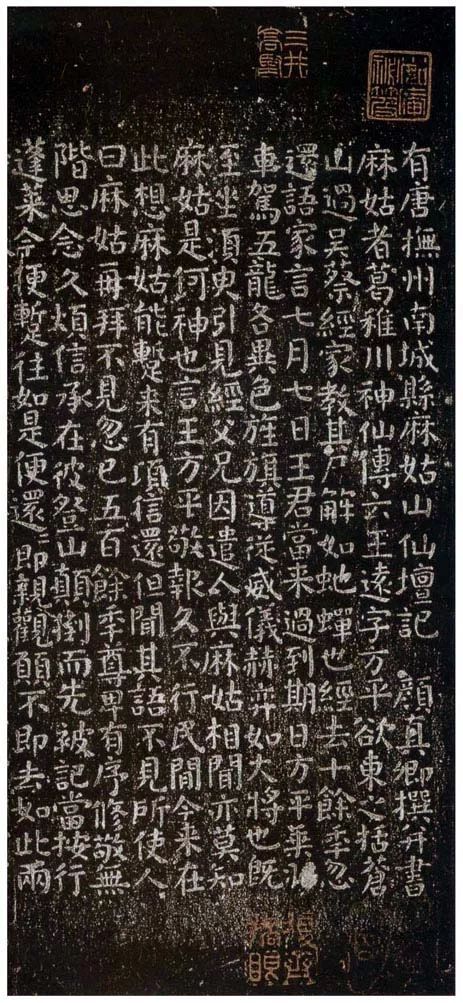 三井高堅
有唐撫州南城縣麻姑山仙壇記 顏真卿撰并書
麻姑者葛稚川神仙傳云王遠字方平欲東之括蒼
山過吳蔡經家教其尸解如虵蟬也經去十餘秊忽
還語家言七月七日王君當來過到期日方平乘
車駕五龍各異色旌旗導從威儀赫弈如大將也既
至坐須臾引見經父兄因遣人與麻姑相聞亦莫知
麻姑是何神也言王方平敬報久不行民間今來在
此想麻姑能蹔来有頃信還但聞其語不見所使人
曰麻姑再拜不見忽已五百餘秊尊卑有序修敬無
階思念久煩信承在彼登山顛倒而先被記當按行
蓬萊今便蹔往如是便還還即親觀願不即去如此兩